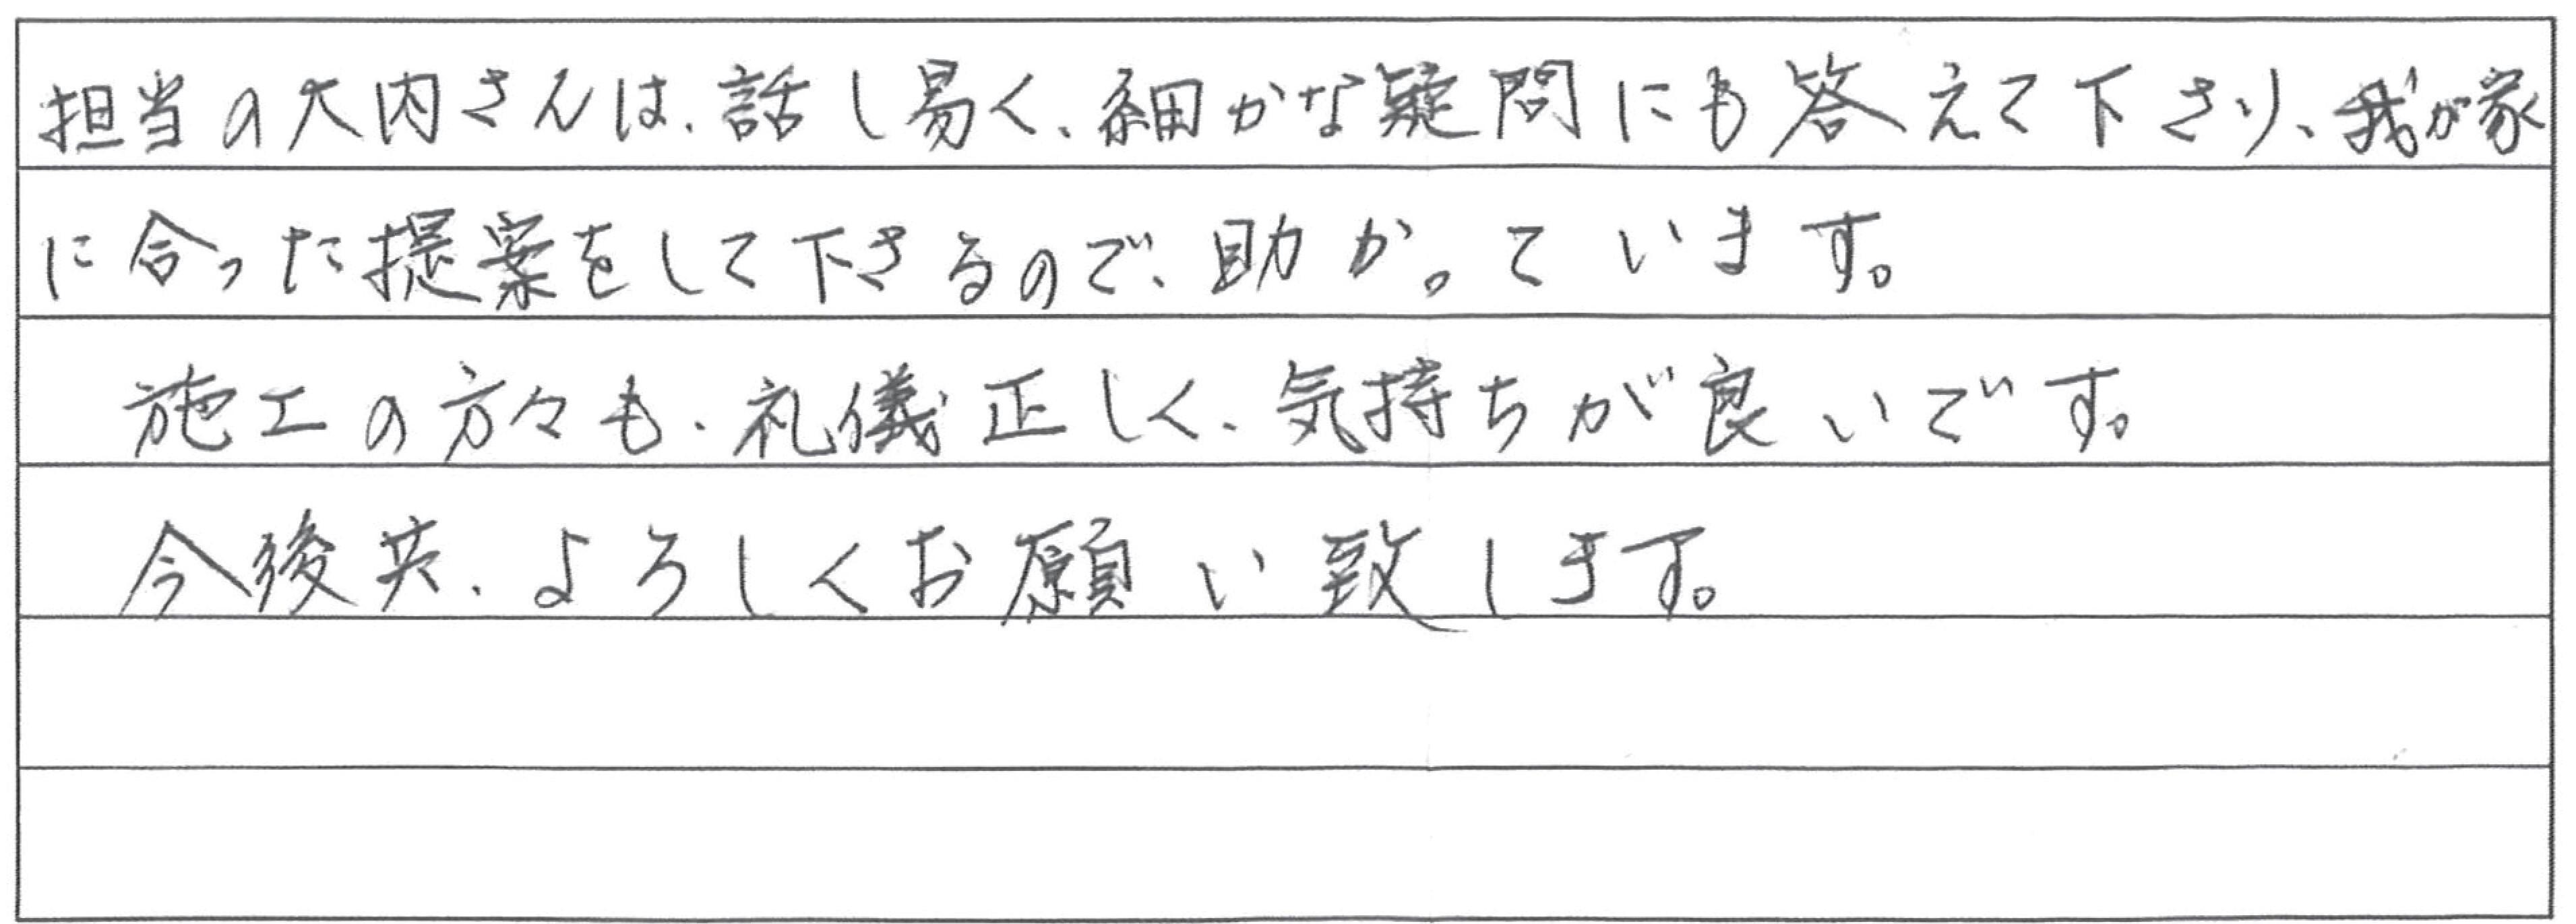 担当の大内さんは、話し易く、細かな疑問にも答えて下さり、我が家
に合った提案をして下さるので、助かっています。
施工の方々も、礼儀正しく、気持ちが良いです。
今後共、よろしくお願い致します。